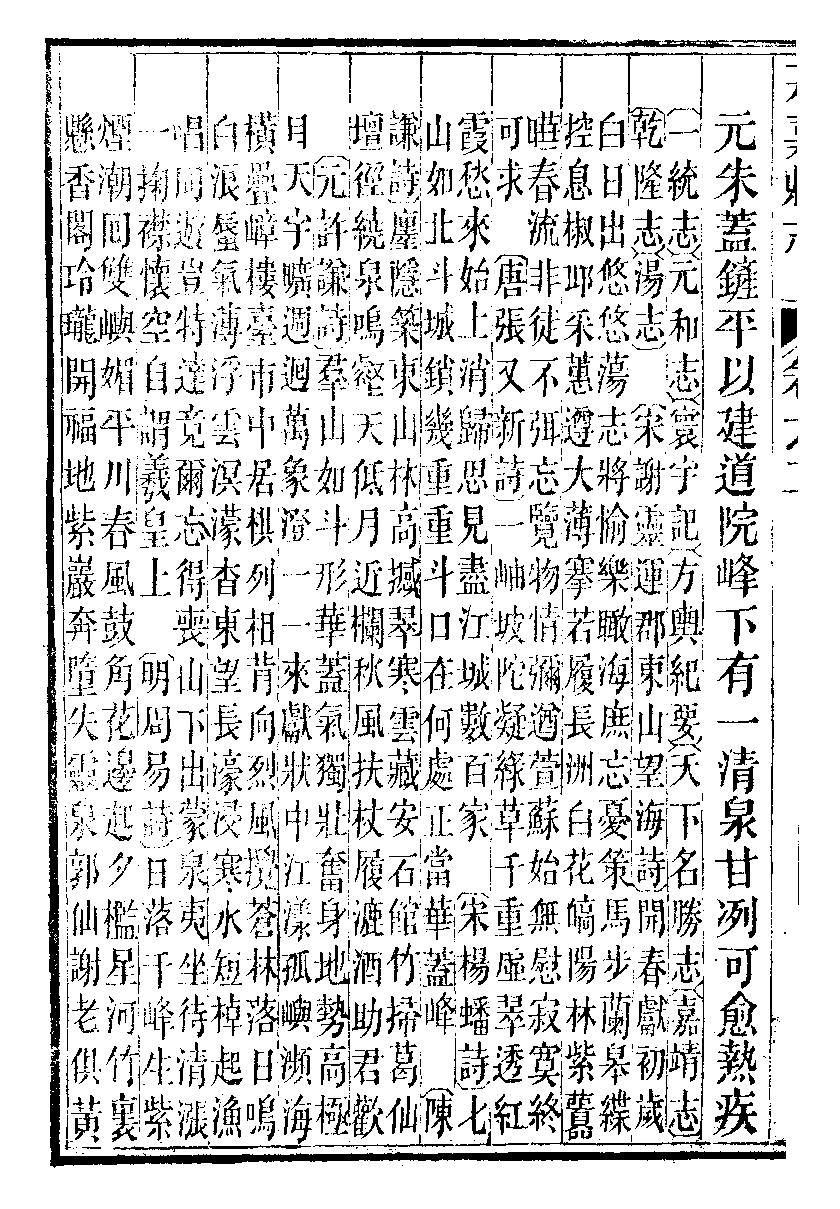 元朱蓋鏟平以建道院峰下有一清泉甘冽可愈熱疾
一統志元和志寰宇記方輿紀要天下名勝志嘉靖志
乾隆志湯志　宋謝靈運郡東山望海詩開春獻初歲
白日出悠悠蕩志將愉樂瞰海庶忘憂策馬步蘭皋緤
控息椒邱采蕙遵大薄搴若履長洲白花皜陽林紫虈
曄春流非徒不弭忘覽物情彌遒萱蘇始無慰寂寞終
可求　唐張又新詩一岫坡陀凝綠草千重虛翠透紅
霞愁來始上消歸思見盡江城數百家　宋楊蟠詩七
山如北斗城鎖幾重重斗口在何處正當華蓋峰　陳
謙詩塵隱築東山林高摵翠寒雲藏安石館竹掃葛仙
壇徑繞泉鳴壑天低月近欄秋風扶杖履漉酒助君歡
元許謙詩羣山如斗形華蓋氣獨壯奮身地勢高極
目天宇曠週迴萬象澄一一來獻狀中江漾孤嶼瀕海
橫疊嶂樓臺市中居棋列相背向烈風攪蒼林落日鳴
白浪蜃氣薄浮雲溟濛杳東望長濠浸寒水短棹起漁
唱同遊豈特達竟爾忘得喪山下出蒙泉夷坐待清漲
一掬襟懷空自謂羲皇上　明周易詩日落千峰生紫
煙潮囘雙嶼媚平川春風鼓角花邊起夕檻星河竹裏
懸香閣玲瓏開福地紫巖奔墮失靈泉郭仙謝老俱黃